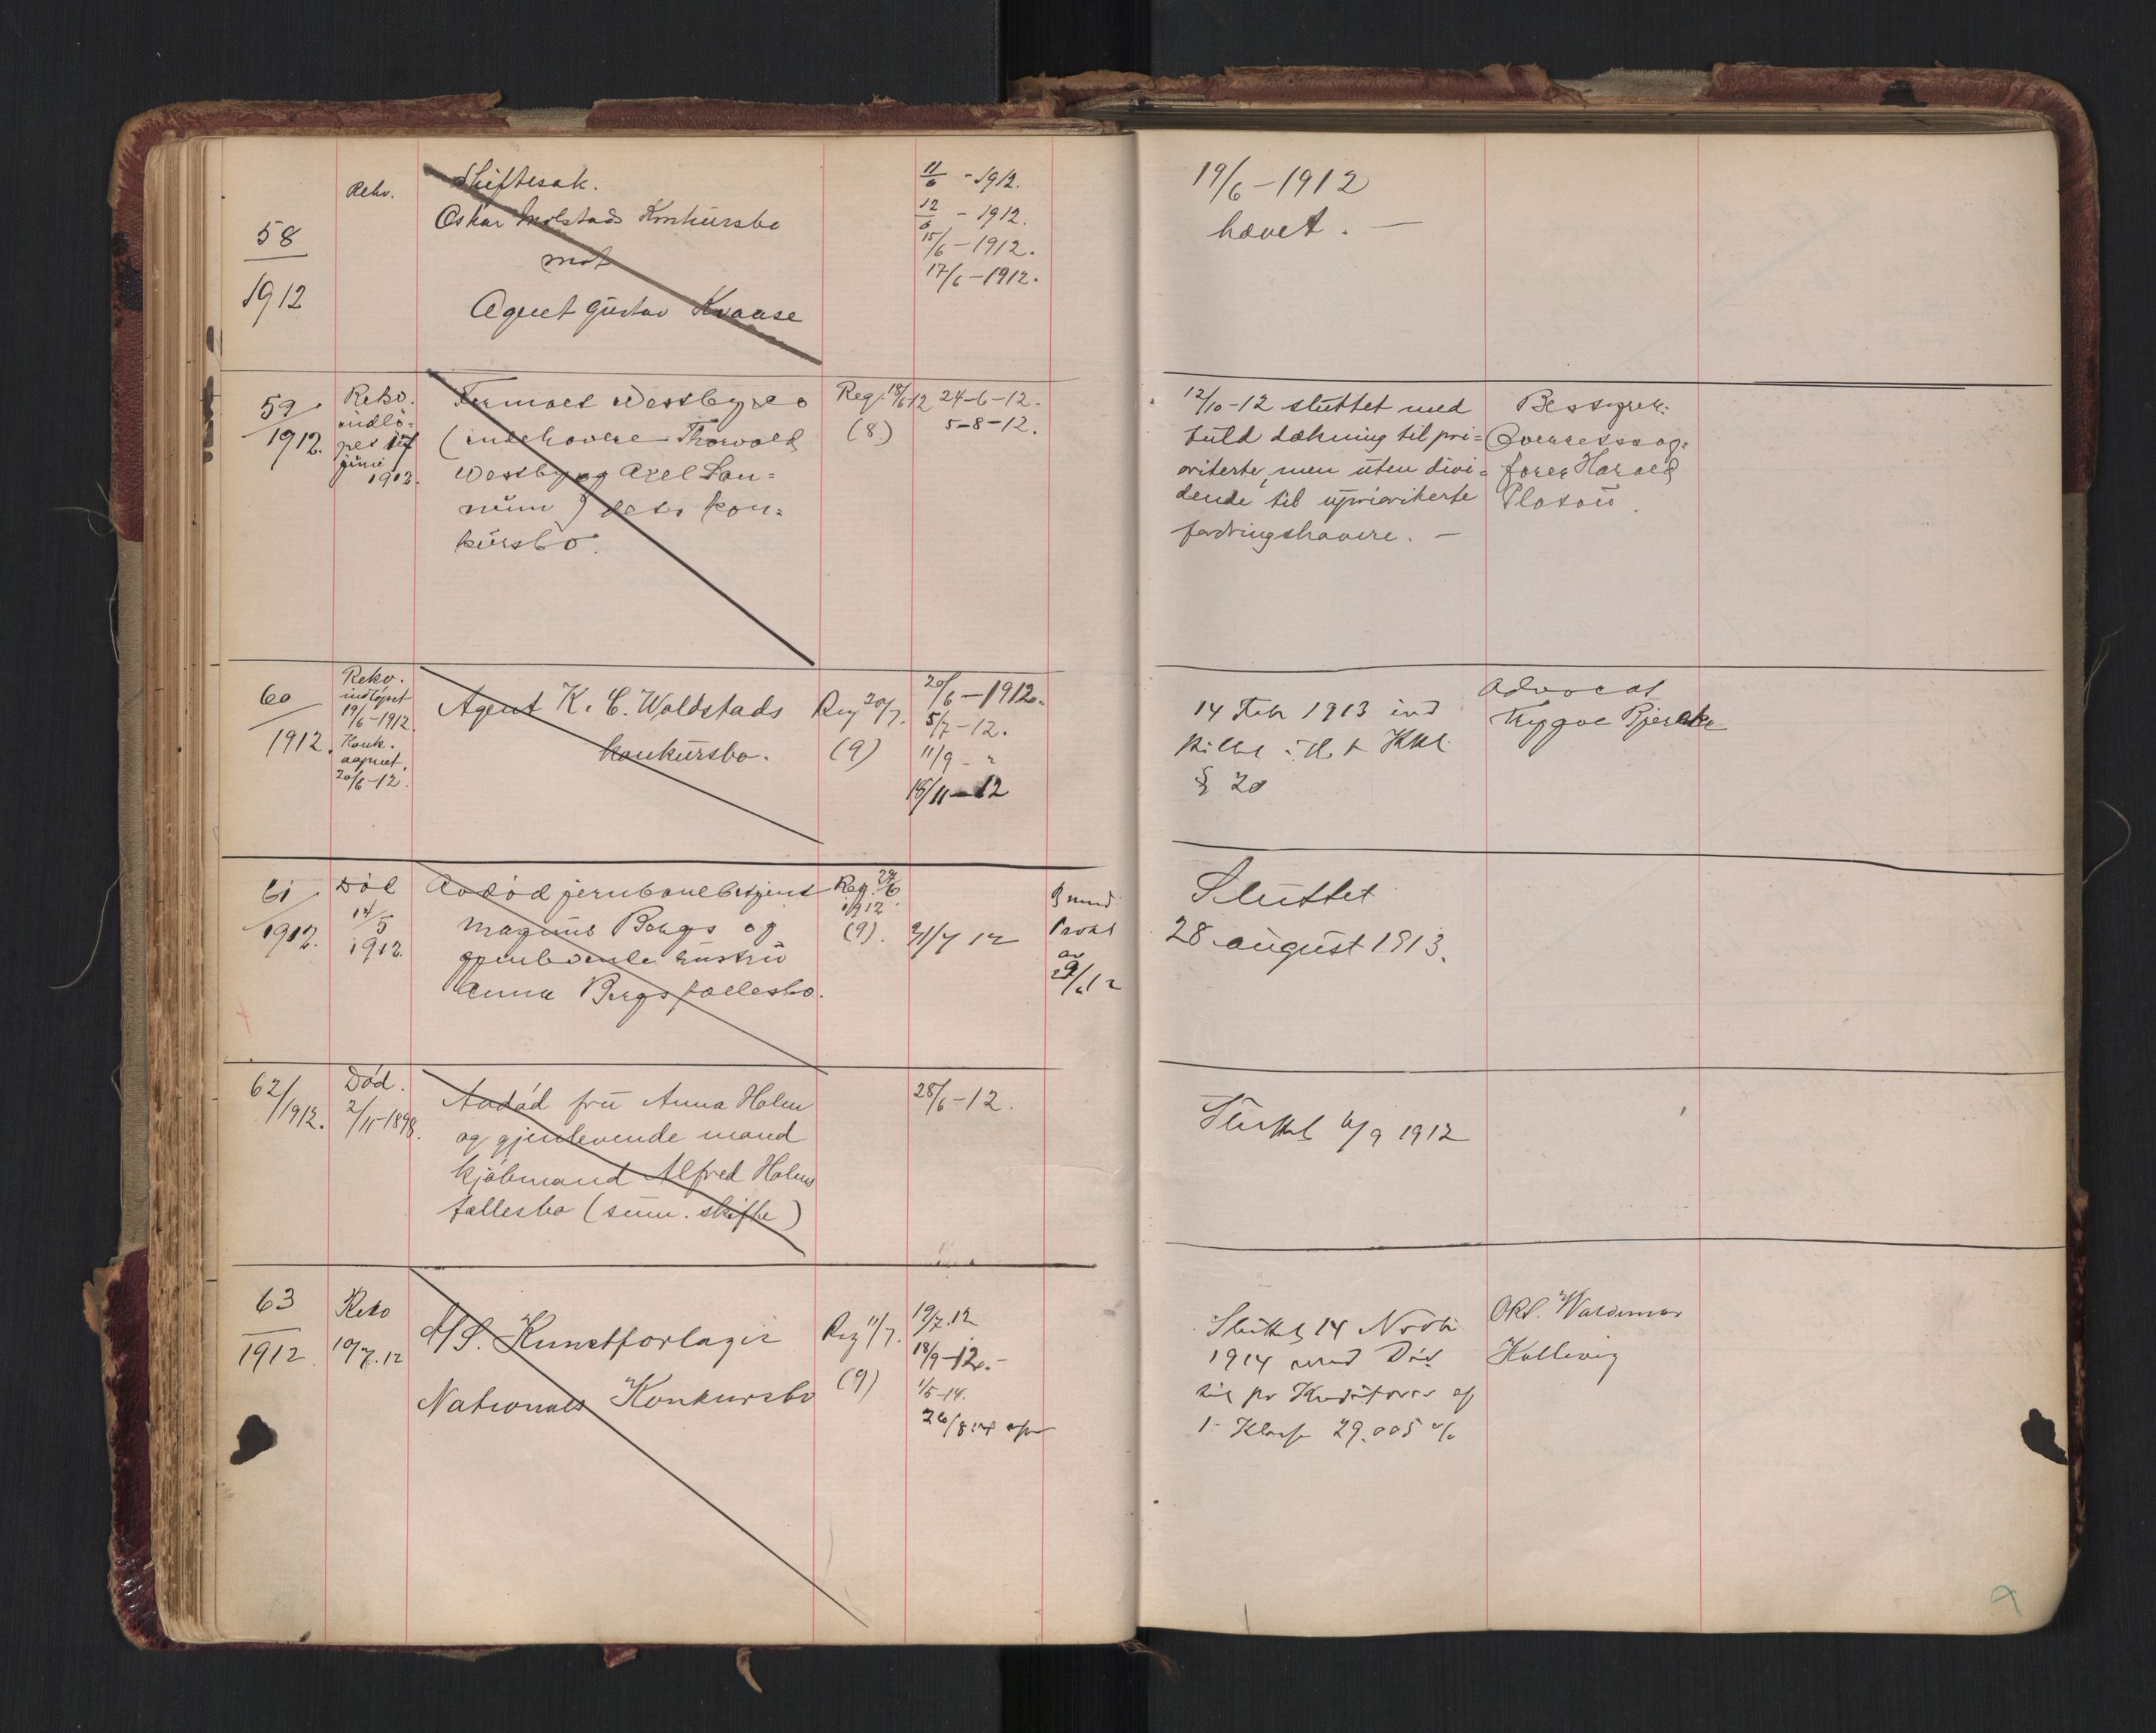 58
1912
Rekv.
Skiftesak.
Oskar Molstads Konkursbo
mot
Agent Gustav Kraase
11/6 - 1912.
12/6 - 1912.
15/6 - 1912.
17/6 - 1912.
19/6 - 1912
hævet. —
59/1912.
Rekv.
indlö-
pet 17
juni
1912.
Firmaet Westbye &
(indehavere Thorvald
Westby og Axel Lan-
num) deres kon-
kursbo.
Reg. 18/6 12
(8.)
24-6-12.
5-8-12.
12/10-12 sluttet med
fuld dækning til pri-
oriterte, men uten divi-
dende til uprioriterte
fordringshavere. —
Bestyrer:
Overretssag-
fører Harald
Platou.
60/1912.
Rekv.
indløpet
19/6-1912.
Konk.
aapnet.
20/6-12.
Agent K. C. Woldstads
konkursbo.
Reg 20/7.
(9)
20/6-1912.
5/7-12.
11/9 - "
18/11-12
14 Febr 1913 ind
stillet i H. t Kkl.
§ 20
Advocat
Trygve Bjercke
61/1912.
Död
14/5
1912.
Avdöd jernbanebetjent
Magnus Bergs og
gjenlevende hustru
Anna Bergs fællesbo.
Reg. 27/6
1912.
(9).
31/7 12
Sluttet
28 august 1913.
62/1912.
Död.
2/11-1898.
Avdöd fru Anna Holm
og gjenlevende mand
kjöbmand Alfred Holms
fællesbo (sum. skifte)
28/6-12.
Sluttet 6/9 1912
63
1912
Rekv
10/7.12
A/S. Kunstforlaget
Nationals Konkursbo
Reg 11/7.
(9)
19/7.12
18/9-12.-
1/5-14.
26/8.14
Sluttet 14 Novbr
1914 med Div
til pr Kreditorer af
1- Klasse 29.005 %
ORS. Waldemar
Hellevig